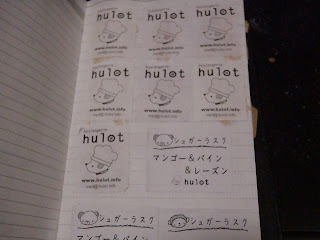 hulot
www.hulot.info
hulot
www.hulot.info
hulot
www.hulot.info
boulangerie
hulot
www.hulot.info
boulangerie
hulot
www.hulot.info
boulangerie
hulot
www.hulot.info
boulangerie
hulot
www.hulot.info
シュガーラスク
マンゴー&パイン
&レーズン
hulot
シュガーラスク
マンゴー&パイン
シュガーラスク